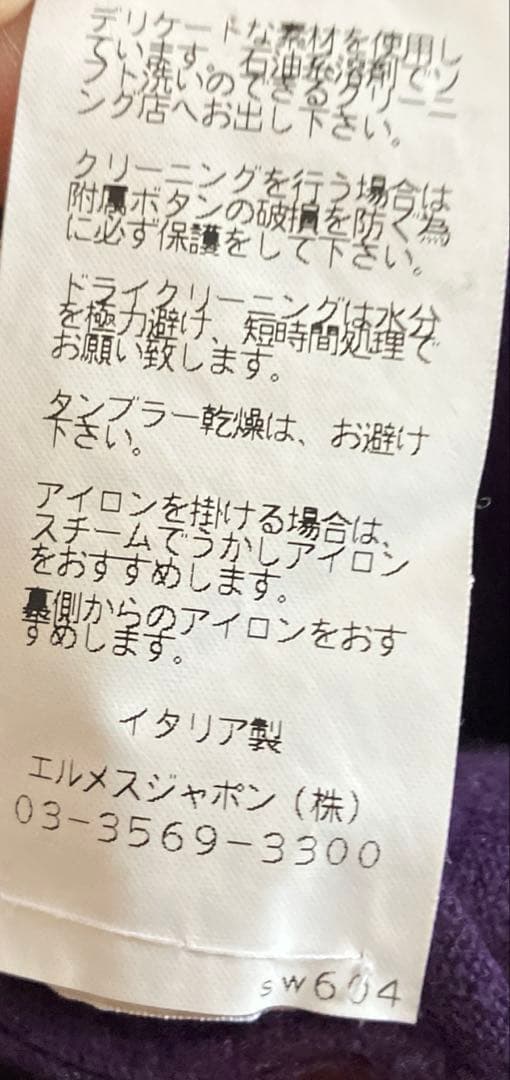 デリケートな素材を使用し
ています。石油系溶剤でソ
フト洗いのできるクリーニ
ング店へお出し下さい。
クリーニングを行う場合は
附属ボタンの破損を防ぐ為
に必ず保護をして下さい。
ドライクリーニングは水分
を極力避け、短時間処理で
お願い致します。
タンブラー乾燥は、お避け
下さい。
アイロンを掛ける場合は、
スチームでうかしアイロン
をおすすめします。
裏側からのアイロンをおす
すめします。
イタリア製
エルメスジャポン(株)
03-3569-3300
sw604